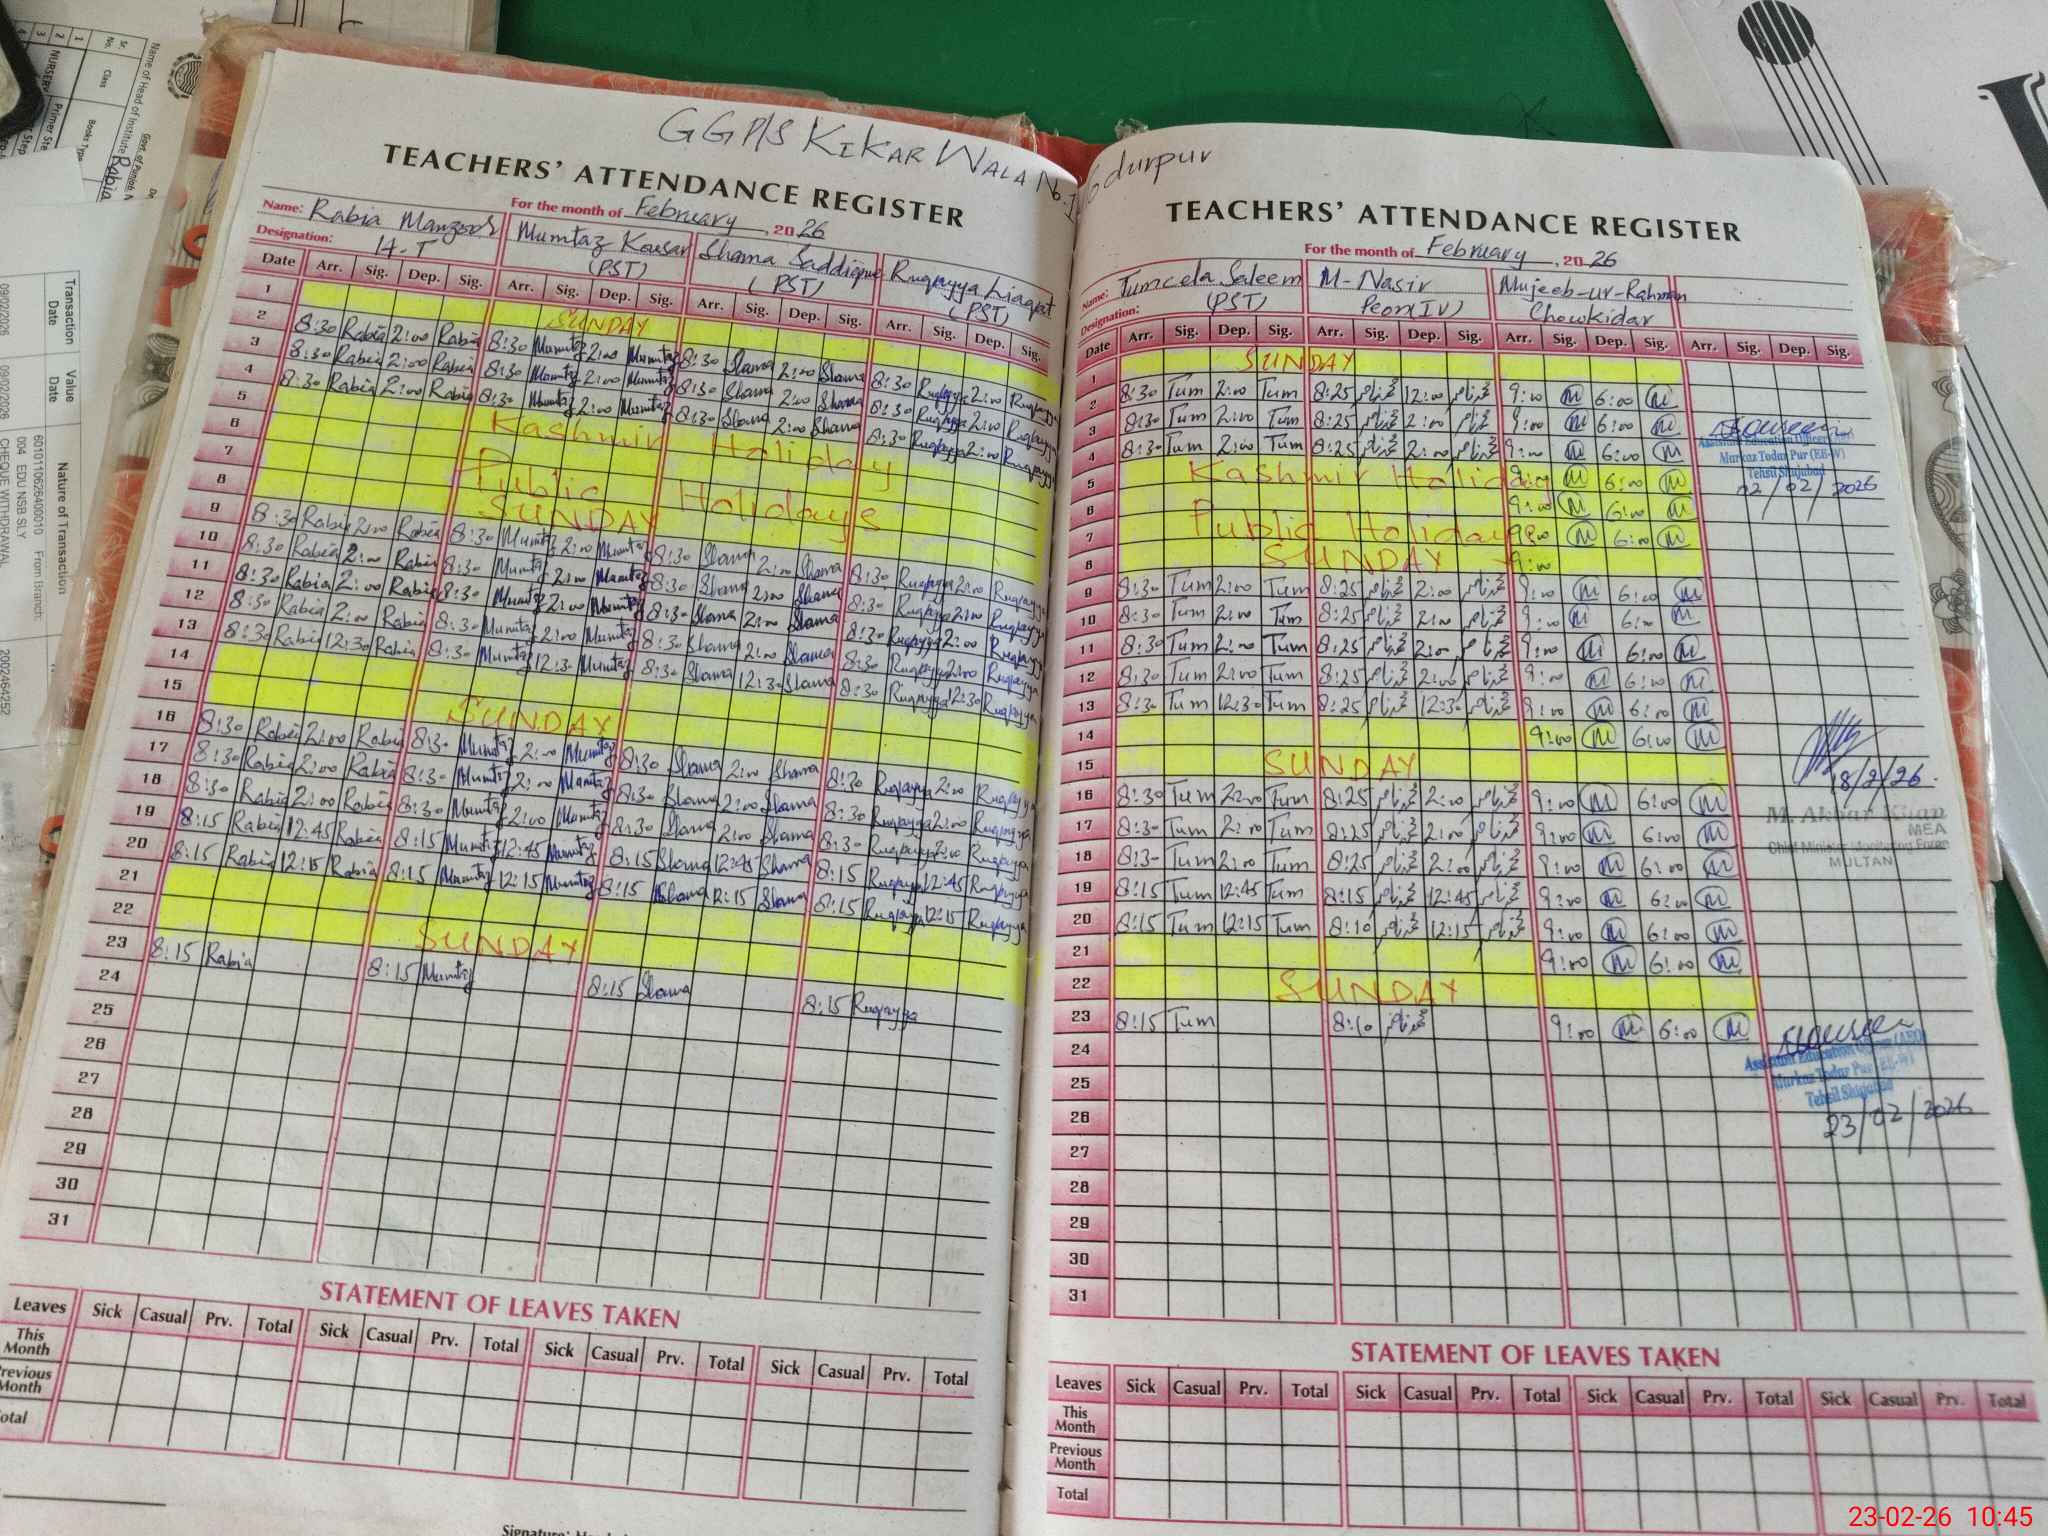 GGP/S KIKAR WALA No.I Todurpur
TEACHERS' ATTENDANCE REGISTER
For the month of February, 2026
Name: Rabia Manzoor Mumtaz Kousar Shama Saddique Ruqayya Liaqat
Designation: (PST) (PST) (PST)
Date Arr. Sig. Dep. Sig. Arr. Sig. Dep. Sig. Arr. Sig. Dep. Sig. Arr. Sig. Dep. Sig.
1 SUNDAY
2 8:30 Rabia 2:00 Rabia 8:30 Mumtaz 2:00 Mumtaz 8:30 Shama 2:00 Shama 8:30 Ruqayya 2:00 Ruqayya
3 8:30 Rabia 2:00 Rabia 8:30 Mumtaz 2:00 Mumtaz 8:30 Shama 2:00 Shama 8:30 Ruqayya 2:00 Ruqayya
4 8:30 Rabia 2:00 Rabia 8:30 Mumtaz 2:00 Mumtaz 8:30 Shama 2:00 Shama 8:30 Ruqayya 2:00 Ruqayya
5 Kashmir Holiday
6
7 Public Holidays
8 SUNDAY
9 8:30 Rabia 2:00 Rabia 8:30 Mumtaz 2:00 Mumtaz 8:30 Shama 2:00 Shama 8:30 Ruqayya 2:00 Ruqayya
10 8:30 Rabia 2:00 Rabia 8:30 Mumtaz 2:00 Mumtaz 8:30 Shama 2:00 Shama 8:30 Ruqayya 2:00 Ruqayya
11 8:30 Rabia 2:00 Rabia 8:30 Mumtaz 2:00 Mumtaz 8:30 Shama 2:00 Shama 8:30 Ruqayya 2:00 Ruqayya
12 8:30 Rabia 2:00 Rabia 8:30 Mumtaz 2:00 Mumtaz 8:30 Shama 2:00 Shama 8:30 Ruqayya 2:00 Ruqayya
13 8:30 Rabia 12:30 Rabia 8:30 Mumtaz 12:30 Mumtaz 8:30 Shama 12:30 Shama 8:30 Ruqayya 12:30 Ruqayya
14
15 SUNDAY
16 8:30 Rabia 2:00 Rabia 8:30 Mumtaz 2:00 Mumtaz 8:30 Shama 2:00 Shama 8:30 Ruqayya 2:00 Ruqayya
17 8:30 Rabia 2:00 Rabia 8:30 Mumtaz 2:00 Mumtaz 8:30 Shama 2:00 Shama 8:30 Ruqayya 2:00 Ruqayya
18 8:30 Rabia 2:00 Rabia 8:30 Mumtaz 2:00 Mumtaz 8:30 Shama 2:00 Shama 8:30 Ruqayya 2:00 Ruqayya
19 8:15 Rabia 12:45 Rabia 8:15 Mumtaz 12:45 Mumtaz 8:15 Shama 12:45 Shama 8:15 Ruqayya 12:45 Ruqayya
20 8:15 Rabia 12:15 Rabia 8:15 Mumtaz 12:15 Mumtaz 8:15 Shama 12:15 Shama 8:15 Ruqayya 12:15 Ruqayya
21
22 SUNDAY
23 8:15 Rabia 8:15 Mumtaz 8:15 Shama 8:15 Ruqayya
24
25
26
27
28
29
30
31
STATEMENT OF LEAVES TAKEN
Leaves Sick Casual Prv. Total Sick Casual Prv. Total Sick Casual Prv. Total Sick Casual Prv. Total
This Month
Previous Month
Total
TEACHERS' ATTENDANCE REGISTER
For the month of February, 2026
Name: Tumeela Saleem M-Nasir Mujeeb-ur-Rahman
Designation: (PST) Peon(IV) Chowkidar
Date Arr. Sig. Dep. Sig. Arr. Sig. Dep. Sig. Arr. Sig. Dep. Sig. Arr. Sig. Dep. Sig.
1 SUNDAY
2 8:30 Tum 2:00 Tum 8:25 12:00 9:00 M 6:00 M
3 8:30 Tum 2:00 Tum 8:25 2:00 9:00 M 6:00 M
4 8:30 Tum 2:00 Tum 8:25 2:00 9:00 M 6:00 M
5 Kashmir Holiday 9:00 M 6:00 M
6 9:00 M 6:00 M
7 Public Holiday 9:00 M 6:00 M
8 SUNDAY 9:00
9 8:30 Tum 2:00 Tum 8:25 2:00 9:00 M 6:00 M
10 8:30 Tum 2:00 Tum 8:25 2:00 9:00 M 6:00 M
11 8:30 Tum 2:00 Tum 8:25 2:00 9:00 M 6:00 M
12 8:30 Tum 2:00 Tum 8:25 2:00 9:00 M 6:00 M
13 8:30 Tum 12:30 Tum 8:25 12:30 9:00 M 6:00 M
14 9:00 M 6:00 M
15 SUNDAY
16 8:30 Tum 2:00 Tum 8:25 2:00 9:00 M 6:00 M
17 8:30 Tum 2:00 Tum 8:25 2:00 9:00 M 6:00 M
18 8:30 Tum 2:00 Tum 8:25 2:00 9:00 M 6:00 M
19 8:15 Tum 12:45 Tum 8:15 12:45 9:00 M 6:00 M
20 8:15 Tum 12:15 Tum 8:10 12:15 9:00 M 6:00 M
21 9:00 M 6:00 M
22 SUNDAY
23 8:15 Tum 8:10 9:00 M 6:00 M
24
25
26
27
28
29
30
31
Assistant Education Officer
Markaz Todar Pur (EE-W)
Tehsil Shujabad
02/02/2026
18/2/26.
M. Akbar Khan
MEA
Chief Minister Monitoring Force
MULTAN
Assistant Education Officer (AEO)
Markaz Todar Pur (EE-W)
Tehsil Shujabad
23/02/2026
STATEMENT OF LEAVES TAKEN
Leaves Sick Casual Prv. Total Sick Casual Prv. Total Sick Casual Prv. Total Sick Casual Prv. Total
This Month
Previous Month
Total
Name of Head of Institute Rabia
Sr. No. Class Books
1
2 NURSERY
3
Transaction Date Value Date Nature of Transaction
09/02/2026 09/02/2026 6010110626400010 From Branch:
004 EDU NSB SLY
CHEQUE WITHDRAWAL
2002464252
23-02-26 10:45